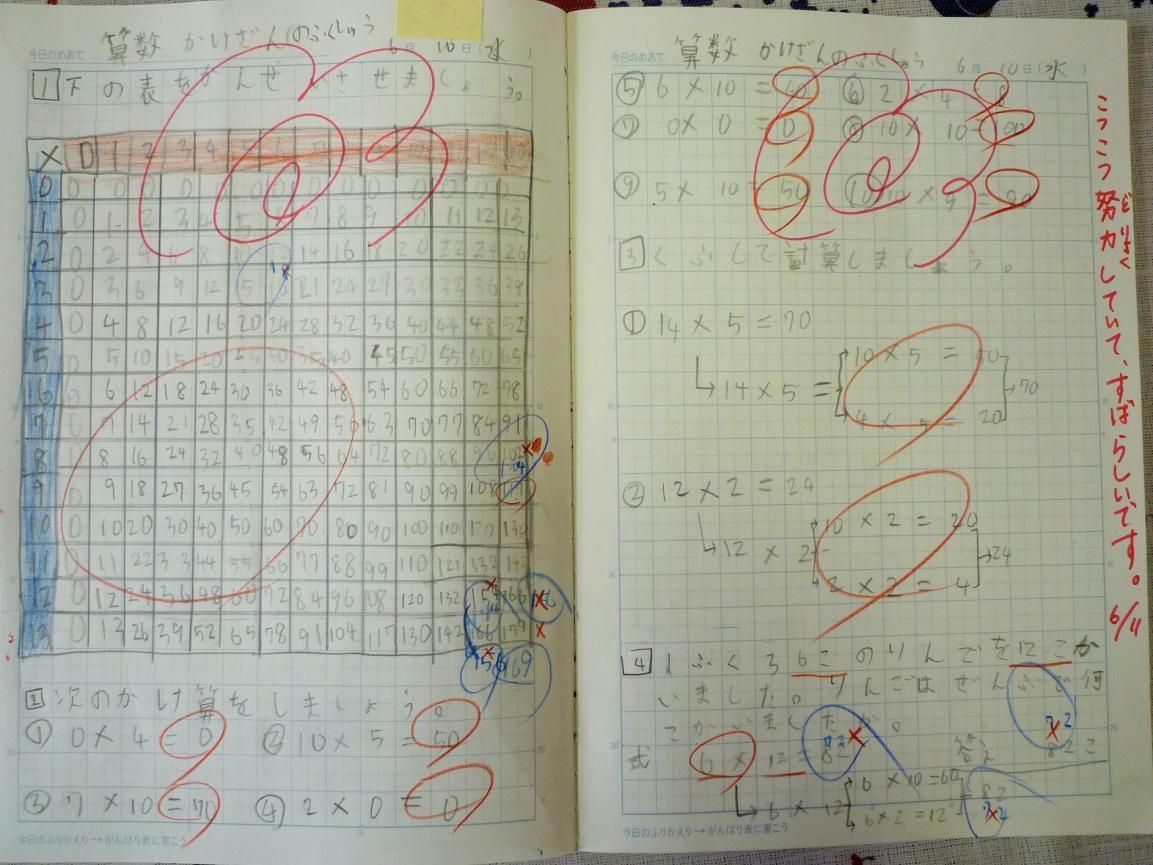 今日のめあて 算数 かけざんのふくしゅう 6月10日(水)
1 下の表をかんせいさせましょう。
× 0 1 2 3 4
0 0 0 0 0
1 2 3 4 5 7 8 9 11 12 13
2 0 2 4 6 8 14 16 18 20 22 24 26
3 0 3 6 9 12 21 24 30 33 36 39
4 0 4 8 12 16 20 24 28 32 36 40 44 48 52
5 5 10 15 20 25 30 35 40 45 50 55 60 65
6 0 6 12 18 24 30 36 42 48 54 60 66 72 78
7 0 7 14 21 28 35 42 49 56 63 70 77 84 91
8 8 16 24 32 40 48 56 64 72 80 88
9 9 18 27 36 45 54 63 72 81 90 99 108
10 0 10 20 30 40 50 60 70 80 90 100 110 120 130
11 0 11 22 33 44 55 66 77 88 99 110 121 132
12 0 12 24 36 48 60 72 84 96 108 120 132
13 0 13 26 39 52 65 78 91 104 117 130 142
156 169
2 次のかけ算をしましょう。
① 0×4=0 ② 10×5=50
③ 7×10=70 ④ 2×0=0
今日のふりかえり→がんばり表に書こう
今日のめあて 算数 かけざんのふくしゅう 6月10日(水)
⑤ 6×10=60 ⑥ 2×4=8
⑦ 0×0=0 ⑧ 10×10=100
⑨ 5×10=50
3 くふうして計算しましょう。
① 14×5=70
10×5=50
→14×5= →70
4×5=20
② 12×2=24
10×2=20
→12×2= →24
2×2=4
4 1ふくろ6このりんごを12こか
いました。りんごはぜんぶで何
こかいましたか。
式 6×12=82 答え 82こ
72 72
6×10=60
→6×12 82
6×2=12 72
今日のふりかえり→がんばり表に書こう
こつこつ努力していて、すばらしいです。6/11
どりょく